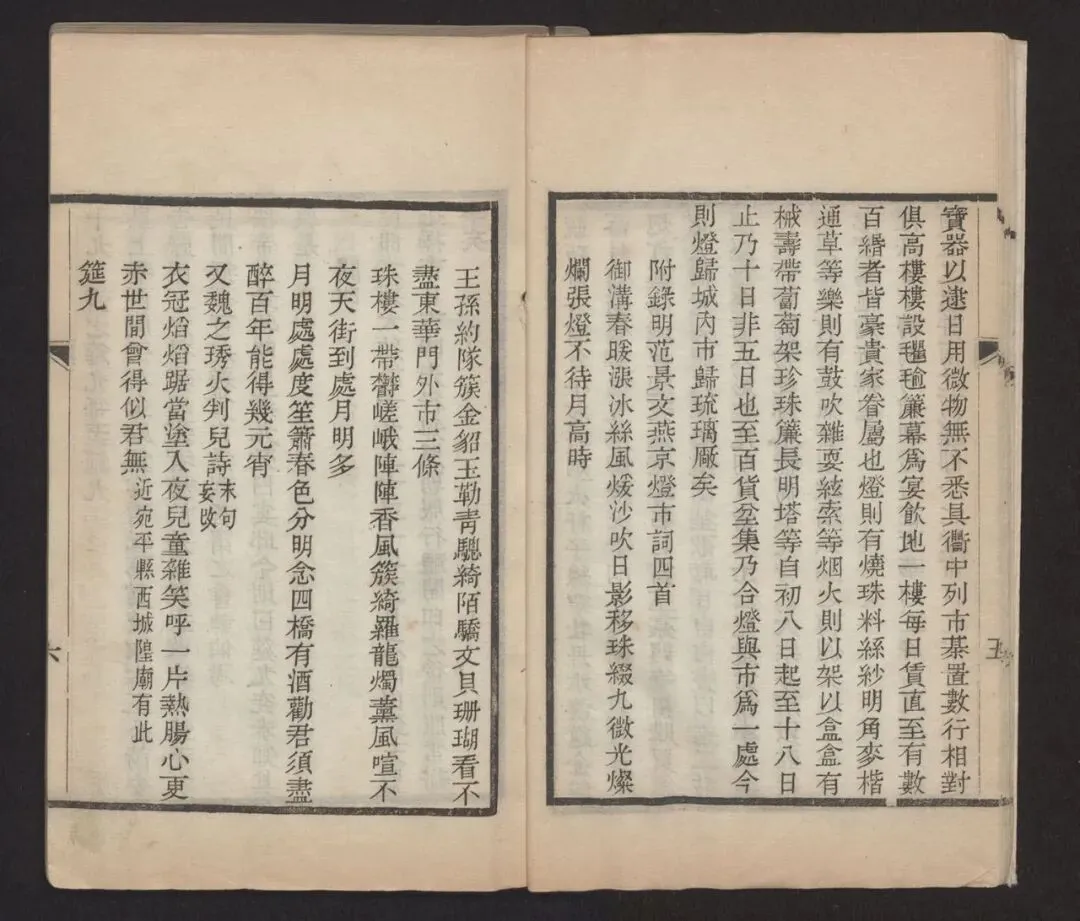 寶器以逮日用微物無不悉具衢中列市棊置數行相對
俱高樓樓設氍毹簾幕爲宴飲地一樓每日賃直至有數
百緡者皆豪貴家眷屬也燈則有燒珠料絲紗明角麥楷
通草等樂則有鼓吹雜耍絃索等烟火則以架以盒盒有
械壽帶葡萄架珍珠簾長明塔等自初八日起至十八日
止乃十日非五日也至百貨坌集乃合燈與市爲一處今
則燈歸城內市歸琉璃厰矣
附錄明范景文燕京燈市詞四首
御溝春暖漲冰絲風煖沙吹日影移珠綴九微光燦
爛張燈不待月高時
五
王孫約隊簇金貂玉勒青驄綺陌驕文貝珊瑚看不
盡東華門外市三條
珠樓一帶鬱嵯峨陣陣香風簇綺羅龍燭薰風喧不
夜天街到處月明多
月明處處度笙簫春色分明念四橋有酒勸君須盡
醉百年能得幾元宵
又魏之琇火判兒詩末句妄改
衣冠熖熖踞當塗入夜兒童雜笑呼一片熱腸心更
赤世間曾得似君無近宛平縣西城隍廟有此
筵九
六